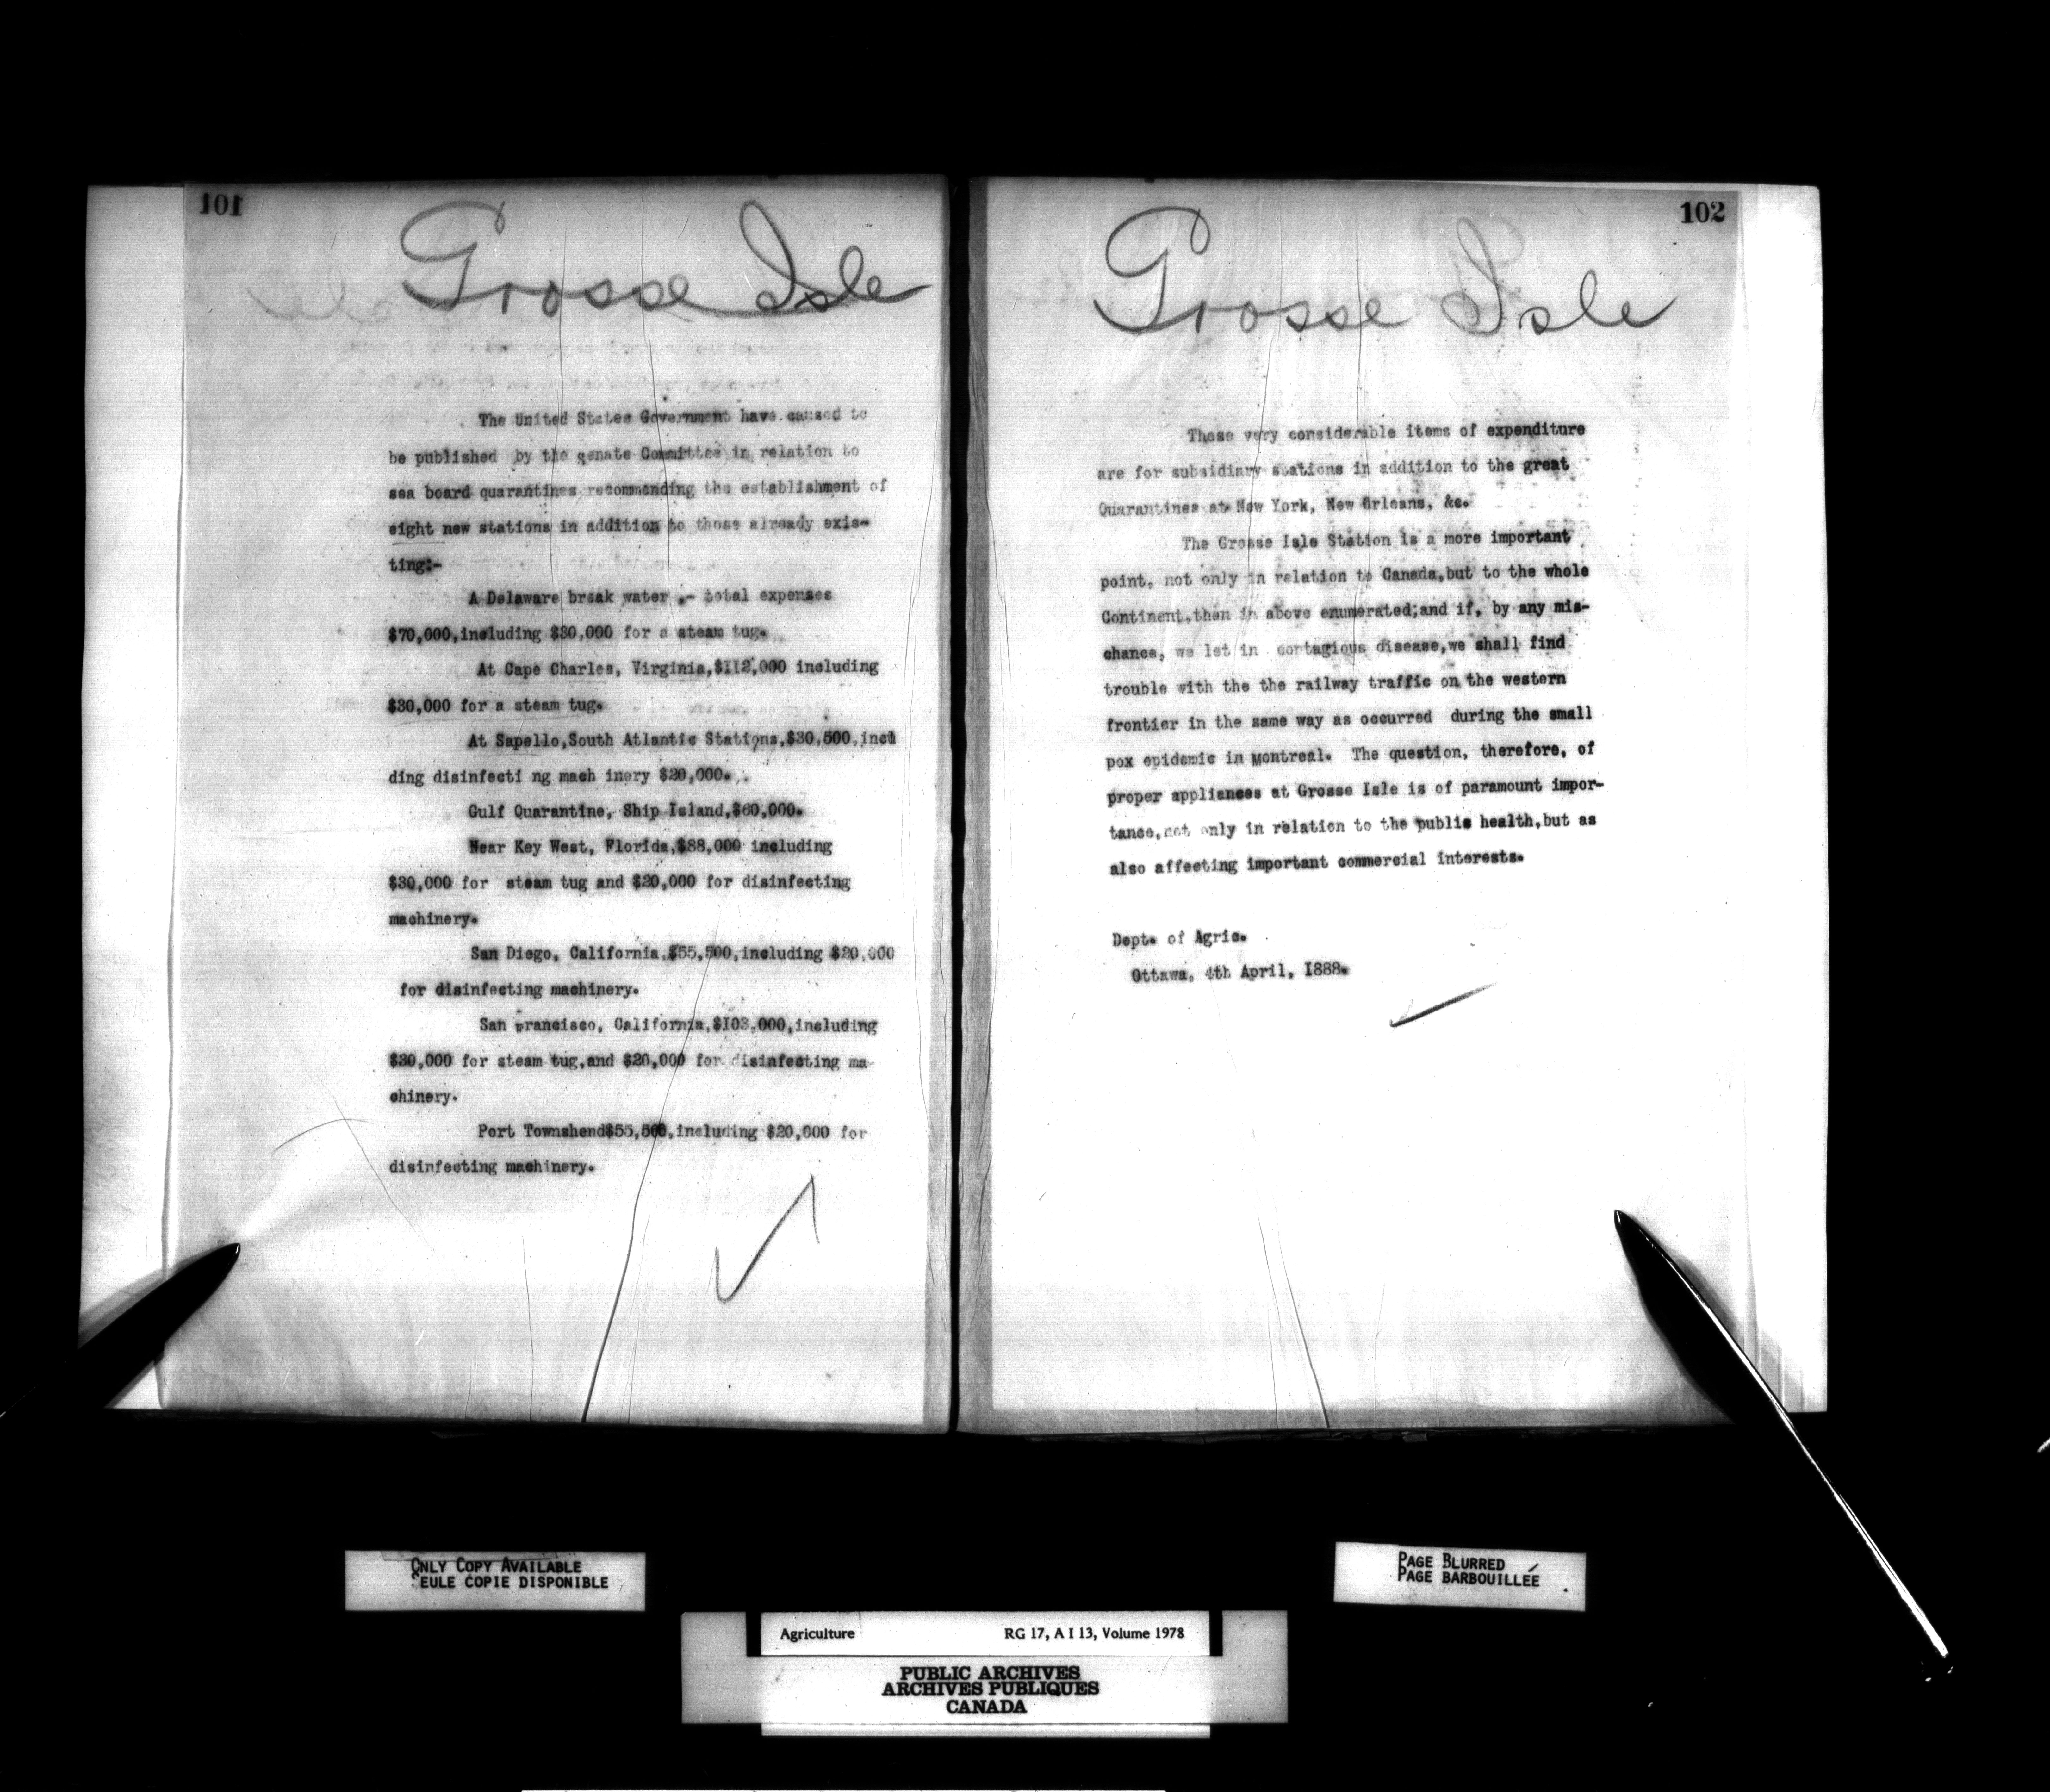 101
Grosse Isle
The United States Government have caused to
be published by the senate Committee in relation to
sea board quarantines recommending the establishment of
eight new stations in addition to those already exis-
ting:-
A Delaware break water .- total expenses
$70,000,including $30,000 for a steam tug.
At Cape Charles, Virginia,$112,000 including
$30,000 for a steam tug.
At Sapello,South Atlantic Stations,$30,500,incl
ding disinfecti ng mach inery $20,000.
Gulf Quarantine, Ship Island,$60,000.
Near Key West, Florida,$88,000 including
$30,000 for steam tug and $20,000 for disinfecting
machinery.
San Diego, California,$55,500,including $20,000
for disinfecting machinery.
San Francisco, California,$103,000,including
$30,000 for steam tug,and $20,000 for disinfecting ma-
chinery.
Port Townshend$55,500,including $20,000 for
disinfecting machinery.
102
Grosse Isle
These very considerable items of expenditure
are for subsidiary stations in addition to the great
Quarantines at New York, New Orleans, &c.
The Grosse Isle Station is a more important
point, not only in relation to Canada,but to the whole
Continent,than in above enumerated;and if, by any mis-
chance, we let in contagious disease,we shall find
trouble with the the railway traffic on the western
frontier in the same way as occurred during the small
pox epidemic in Montreal. The question, therefore, of
proper appliances at Grosse Isle is of paramount impor-
tance,not only in relation to the public health,but as
also affecting important commercial interests.
Dept. of Agric.
Ottawa, 4th April, 1888.
ONLY COPY AVAILABLE
SEULE COPIE DISPONIBLE
PAGE BLURRED
PAGE BARBOUILLÉE
Agriculture RG 17, A I 13, Volume 1978
PUBLIC ARCHIVES
ARCHIVES PUBLIQUES
CANADA